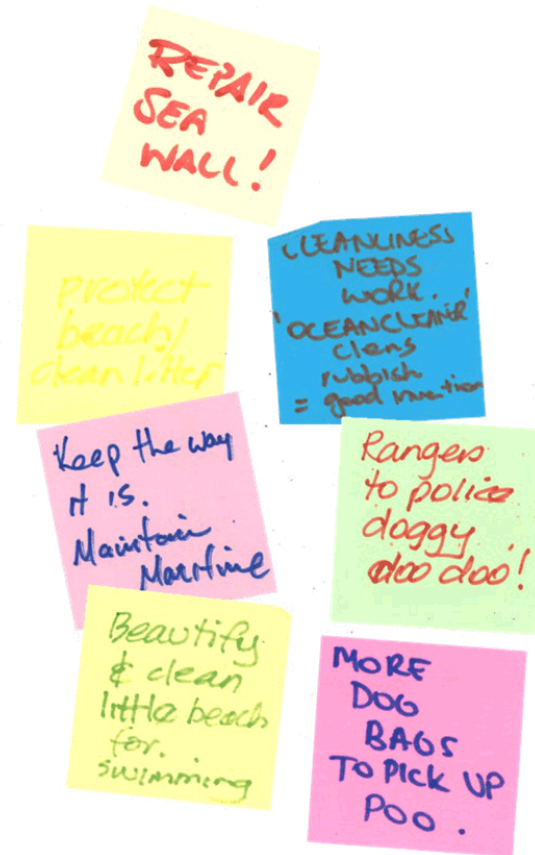 REPAIR
SEA
WALL!
protect
beach/
clean litter
CLEANLINESS
NEEDS
WORK.
'OCEANCLEANER'
clens
rubbish
= good invention
Keep the way
it is.
Maintain
Maritime
Rangers
to police
doggy
doo doo!
Beautify
& clean
little beach
for.
swimming
MORE
DOG
BAGS
TO PICK UP
POO.